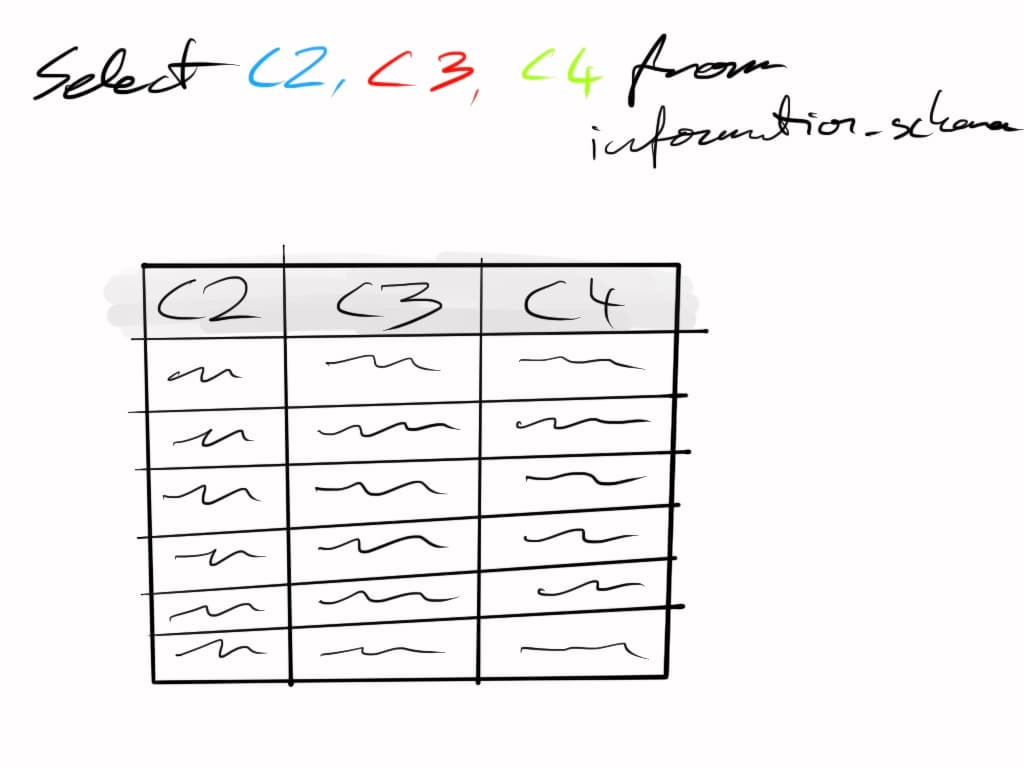 Select C2, C3, C4 from
information_schema
C2 C3 C4